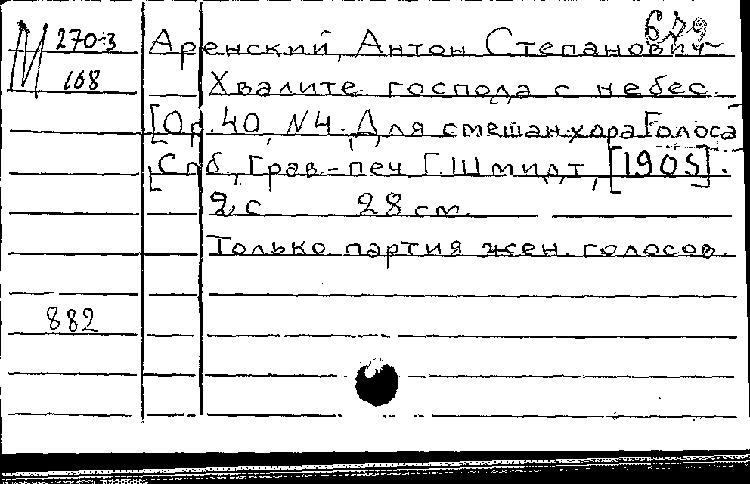 679
М 270-3
168
Аренский, Антон Степанович
Хвалите господа с небес.
[Op. 40, N4. Для смешан. хора Голоса
[Спб., Грав.-печ Г. Шмидт, [1905].
2 с 28 см.
Только партия жен. голосов.
882